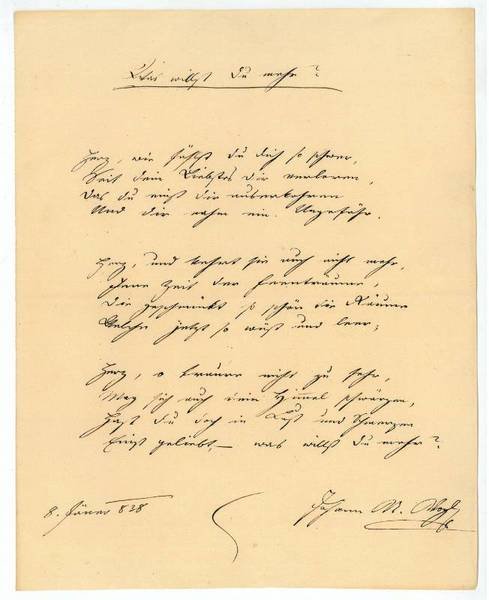 Was willst Du mehr?
Herz, wie fühlst du dich so schwer,
Seit dein Liebstes dir verloren,
Das du mit dir auserkohren
Und dir nahm ein Ungefähr.
Herz, und kehrt sie auch nicht mehr,
Jene Zeit der Feenträume,
Die geschmückt so schön die Räume
Welche jetzt so wüst und leer;
Herz, o traure nicht zu sehr,
Mag sich auch dein Himmel schwärzen,
Hast du doch in Lust und Schmerzen
Einst geliebt – was willst du mehr?
8. Jäner 838
Johann N. Vogl